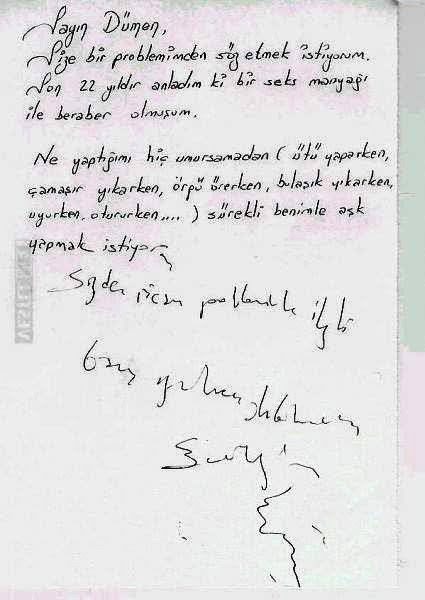 Sayın Dümen,
Size bir problemimden söz etmek istiyorum.
Son 22 yıldır anladım ki bir seks manyağı
ile beraber olmuşum.
Ne yaptığımı hiç umursamadan ( ütü yaparken,
çamaşır yıkarken, örgü örerken, bulaşık yıkarken,
uyurken, otururken.... ) sürekli benimle aşk
yapmak istiyor
Sizden ricam
bana yardımcı